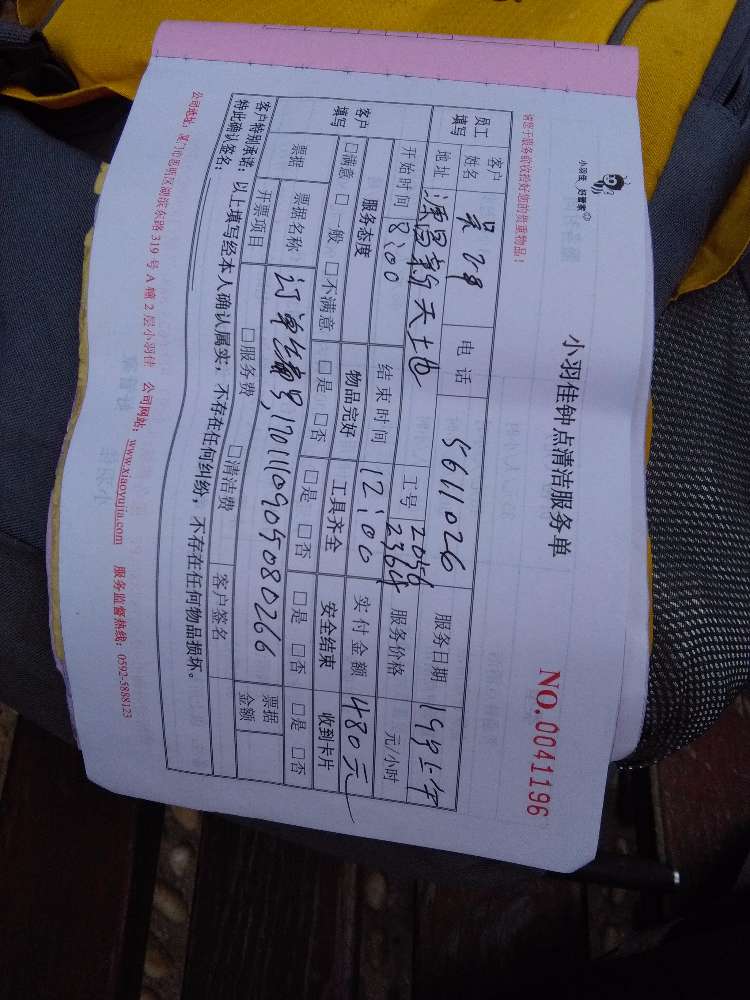 小羽佳 好管家
小羽佳钟点清洁服务单
NO.0041196
请您于服务前收拾好您的贵重物品!
员工填写 客户姓名 吴 电话 5611026 服务日期
地址 新天地 工号 2056 2364 服务价格 元/小时
开始时间 8:00 结束时间 12:00 实付金额 480元
客户填写 服务态度 物品完好 工具齐全 安全结束 收到卡片
□满意 □一般 □不满意 □是 □否 □是 □否 □是 □否 □是 □否
票据 票据名称 订单编号,1701110905080266 票据金额
开票项目 □服务费 □清洁费 客户签名
客户特别承诺:以上填写经本人确认属实,不存在任何纠纷,不存在任何物品损坏。
特此确认签名:
公司地址:厦门市思明区湖滨东路 319 号 A 幢 2 层小羽佳 公司网站:www.xiaoyujia.com 服务监督热线:0592-5888123